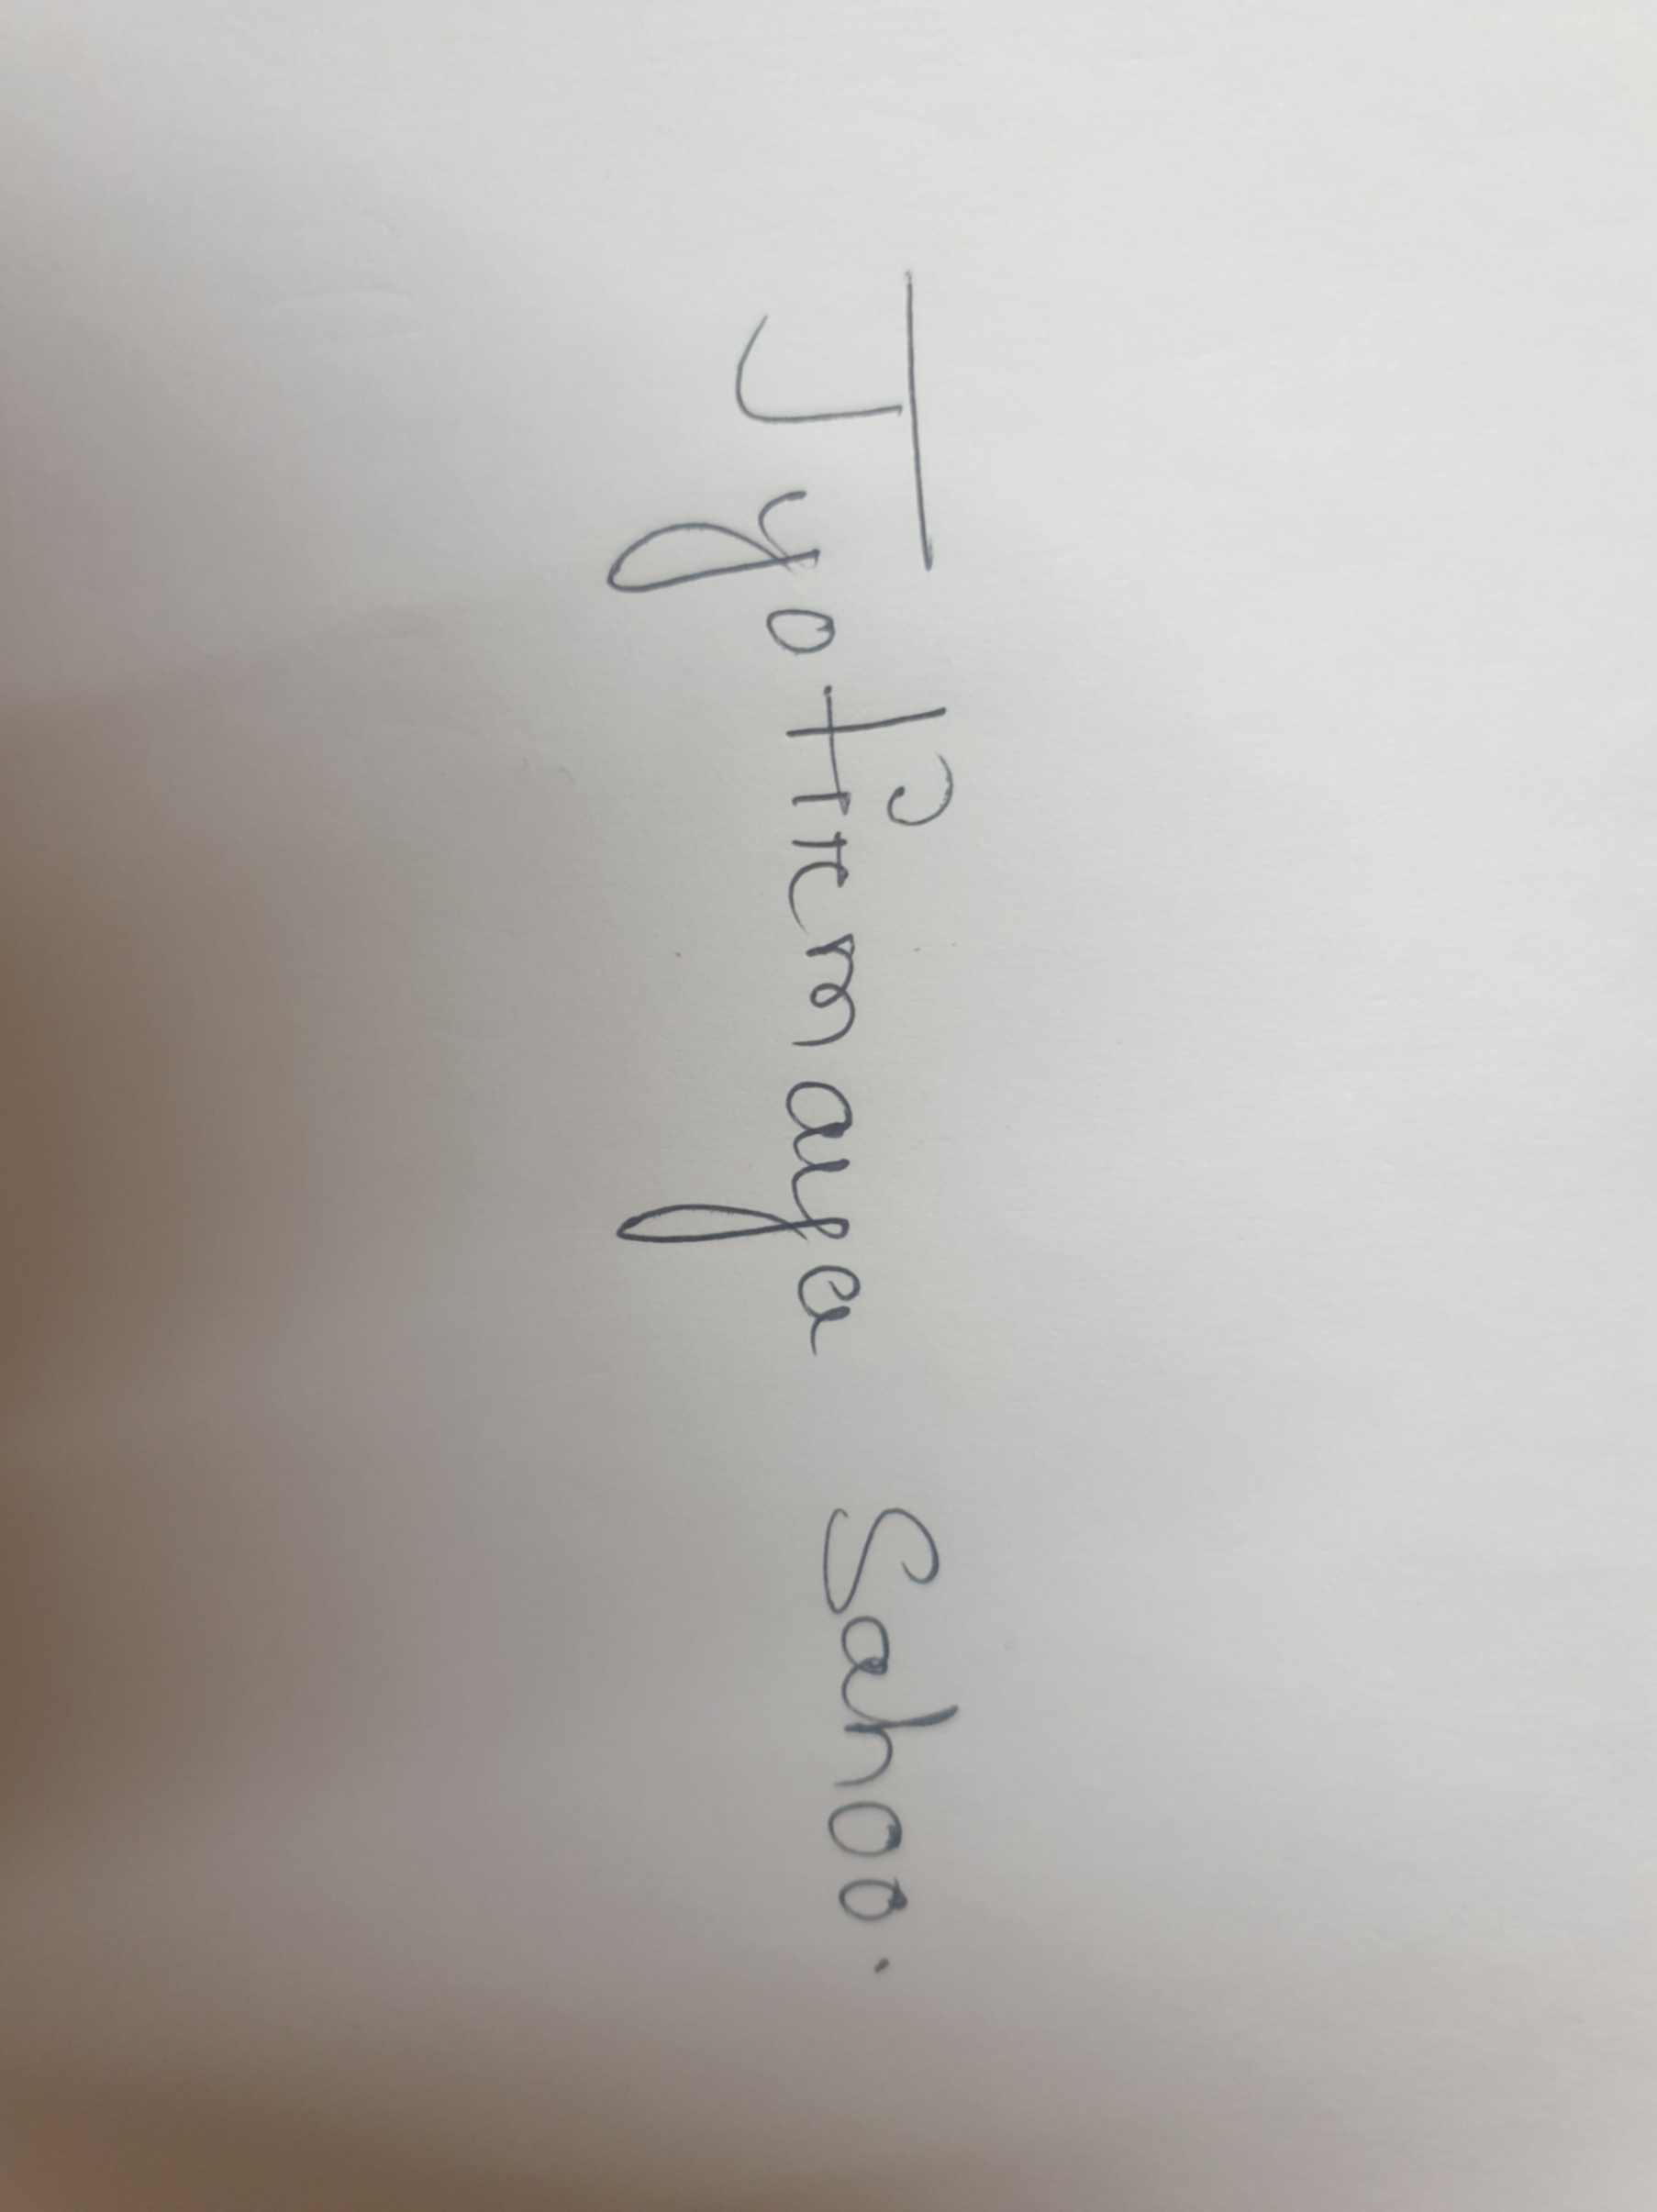 Jyotirmayea Sahoo.